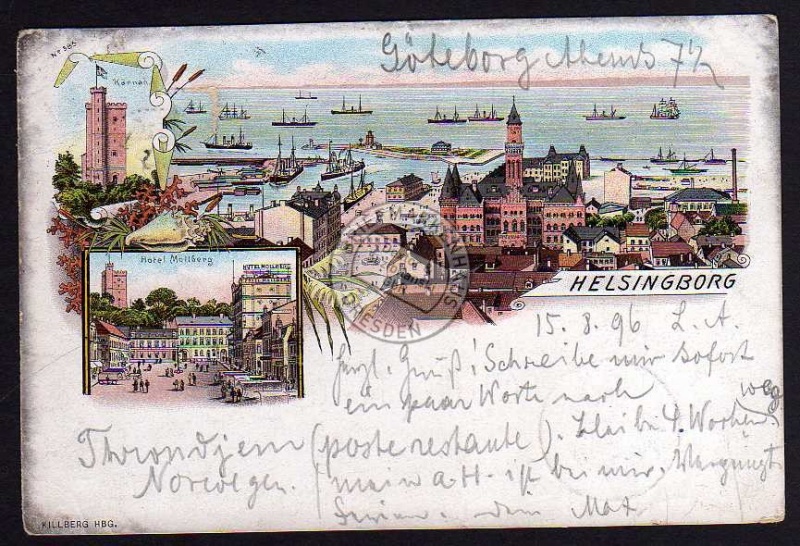 Göteborg Abends 7½
No 505
Kärnan
Hotel Mollberg
HOTEL MOLLBERG
BRIEFMARKENHAUS
DRESDEN
HELSINGBORG
15. 8. 96 L. A.
Herzl. Gruß! Schreibe mir sofort
ein paar Worte nach
Throndjem (poste restante). bleibe 4 Wochen weg
Norwegen. mein a. H. ist bei mir. Vergnügte
Ferien. dein Max
KILLBERG HBG.